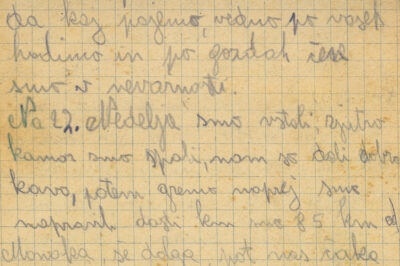 da kaj pojemo, vedno po vaseh
hodimo in po gozdah
smo v nevarnosti.
Na 22. Nedelja smo vstali, zjutro
kamor smo spali, nam so dali dobro
kavo, potem gremo naprej smo
napravli dosti km smo 85 km od
še dolga pot nas čaka